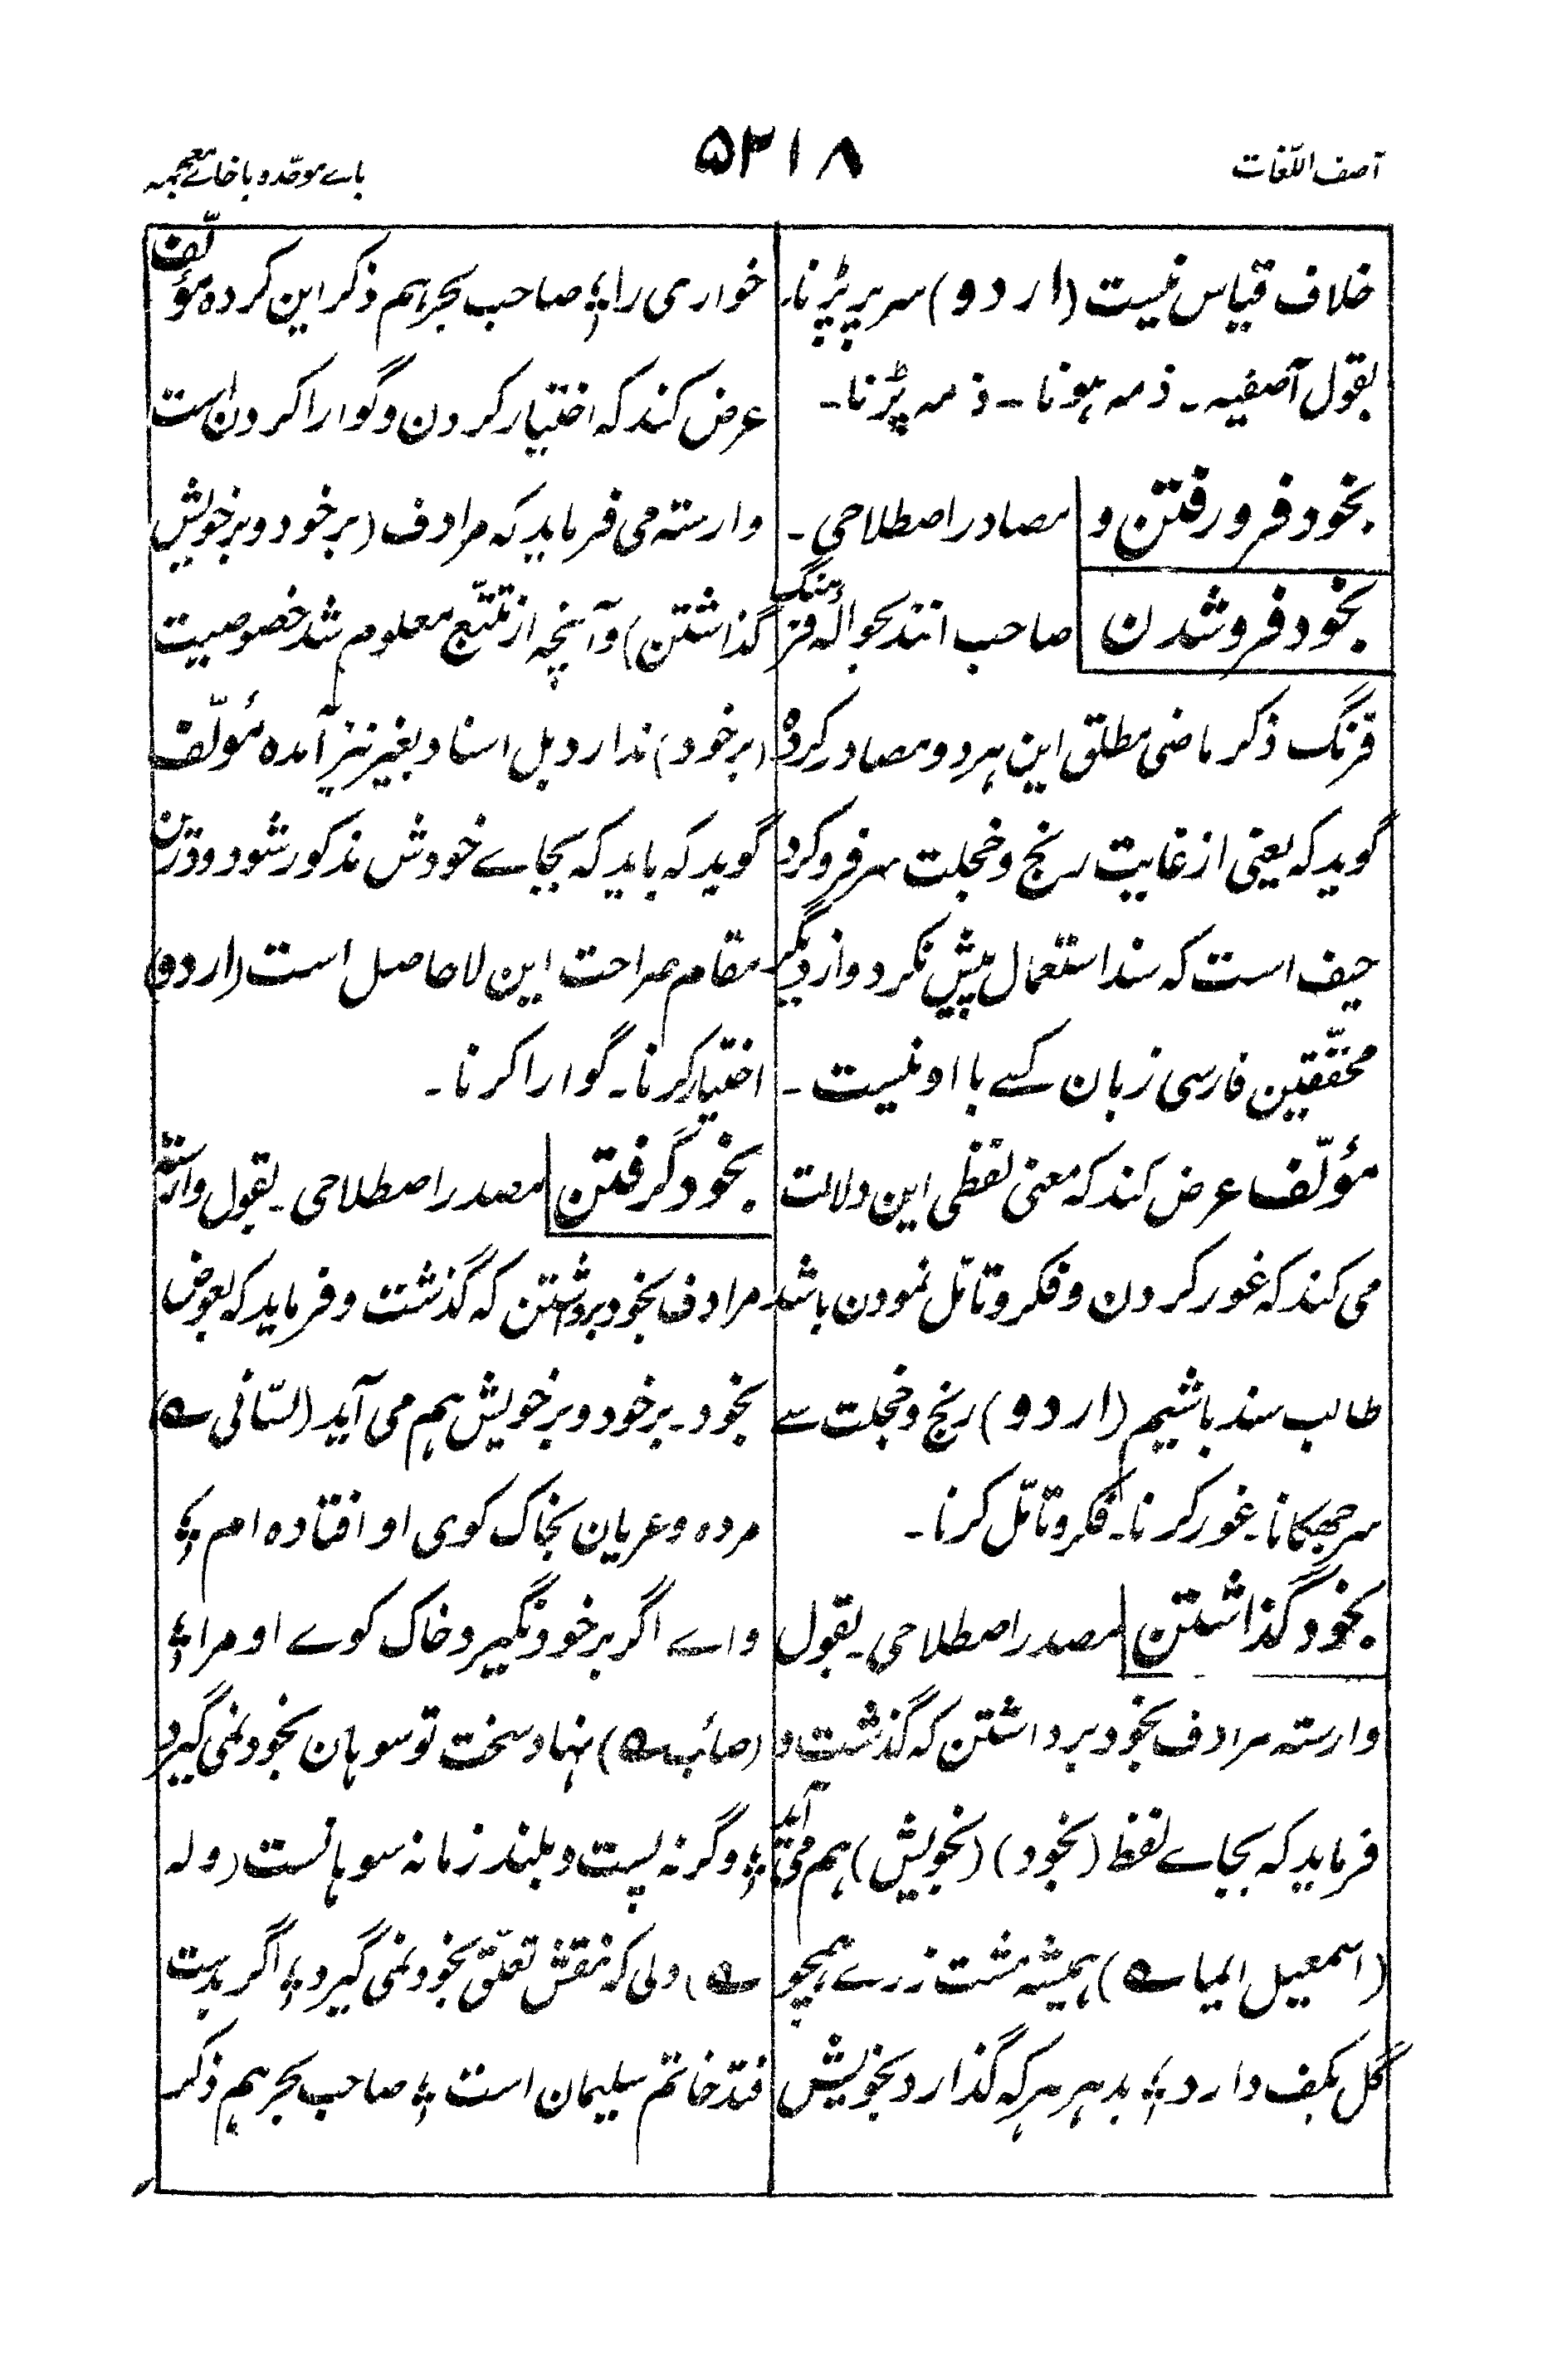 آصف اللّغات
۵۲۱۸
باے موحّدہ با خاے معجمہ
خلاف قیاس نیست (اردو) سر پر پڑنا۔
بقول آصفیہ۔ ذمہ ہونا۔ ذمہ پڑنا۔
بخود فرو رفتن و مصادر اصطلاحی۔
بخود فرو شدن صاحب انند بحوالہ فرہنگ
فرنگ ذکر ماضی مطلق این ہر دو مصادر کردہ
گوید کہ یعنی از غایت رنج و خجلت سر فرو کرد
حیف است کہ سند استعمال پیش نکرد و از دیگر
محققّین فارسی زبان کسے با او نیست۔
مؤلّف عرض کند کہ معنی لفظی این دلالت
می کند کہ غور کردن و فکر و تامّل نمودن باشد
طالب سند باشیم (اردو) رنج و خجلت سے
سر جھکانا۔ غور کرنا۔ فکر و تامّل کرنا۔
بخود گذاشتن مصدر اصطلاحی۔ بقول
وارستہ مرادف بخود برداشتن کہ گذشت و
فرماید کہ بجاے لفظ (بخود) (بخویش) ہم می آید
(اسمعیل ایما ؎) ہمیشہ مشت زرے ہمچو
گل بکف دارد ؛ بدہر ہر کہ گذارد بخویش
خواری را ؛ صاحب بحر ہم ذکر این کردہ مؤلّف
عرض کند کہ اختیار کردن و گوارا کردن است
وارستہ می فرماید کہ مرادف (بر خود و بر خویش
گذاشتن) و آنچہ از تتبّع معلوم شد خصوصیت
(بر خود) ندارد بل اسناد بغیر نیز آمدہ مؤلّف
گوید کہ باید کہ بجاے خودش مذکور شود و درین
مقام صراحت این لاحاصل است (اردو)
اختیار کرنا۔ گوارا کرنا۔
بخود گرفتن مصدر اصطلاحی۔ بقول وارستہ
مرادف بخود برداشتن کہ گذشت و فرماید کہ بعوض
بخود۔ بر خود و بر خویش ہم می آید (لسّانی ؎)
مردہ و عریان بخاک کوی او افتادہ ام ؛
واے اگر بر خود نگیرد خاک کوے او مرا ؛
(صائب ؎) نہاد سخت تو سوہان بخود نمی گیرد
؛ وگرنہ پست و بلند زمانہ سوہانست (ولہ
؎) دلی کہ نقش تعلّق بخود نمی گیرد ؛ اگر بدست
فتد خاتم سلیمان است ؛ صاحب بحر ہم ذکر